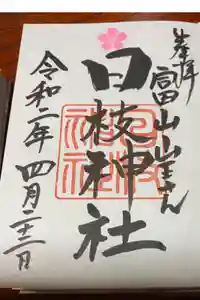 奉拝
富山山王さん
日枝神社
日枝神社
令和二年四月二十三日